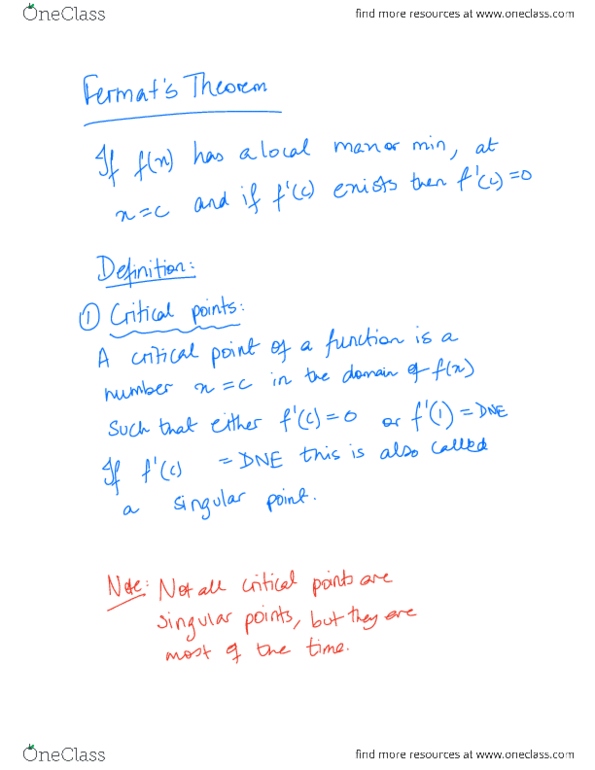 OneClass
find more resources at www.oneclass.com
Fermat's Theorem
If f(x) has a local max or min, at
x=c and if f'(c) exists then f'(c)=0
Definition:
① Critical points:
A critical point of a function is a
number x=c in the domain of f(x)
Such that either f'(c)=0 or f'(1)=DNE
If f'(c) =DNE this is also called
a singular point.
Note: Not all critical points are
singular points, but they are
most of the time.
OneClass
find more resources at www.oneclass.com